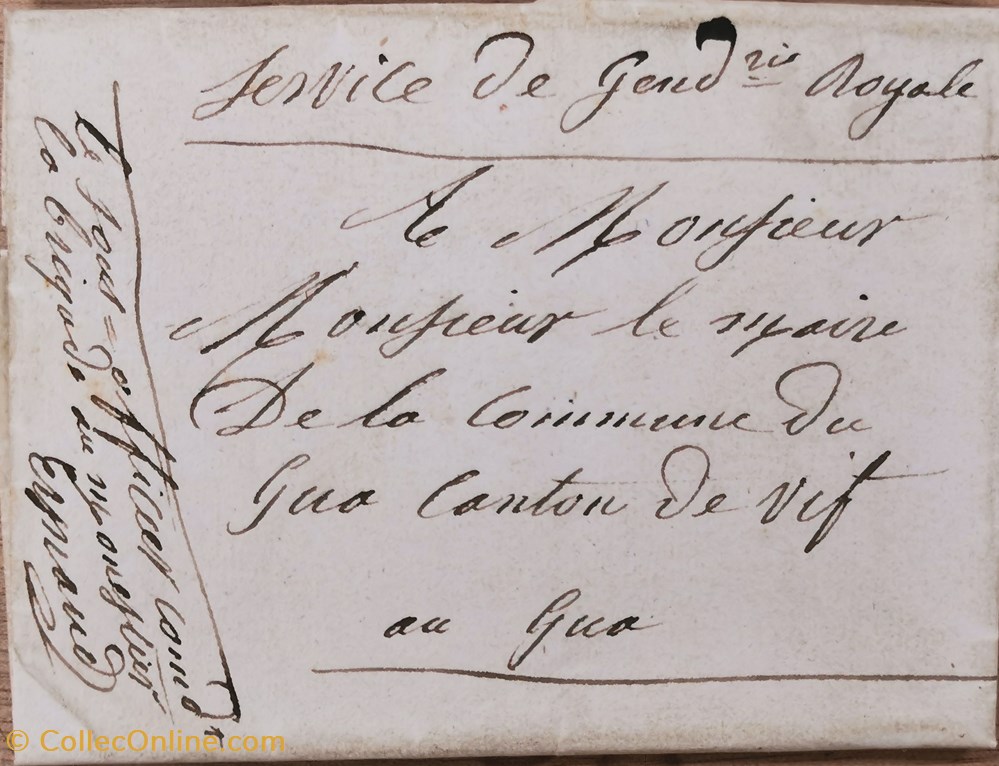 Service de Gend.rie Royale
A Monsieur
Monsieur le maire
De la Commune du
Gua Canton de Vif
au Gua
Le sous-officier Comdt
la brigade du monestier
Eymard
© CollecOnline.com